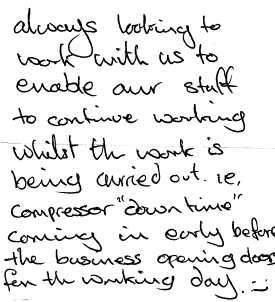 always looking to
work with us to
enable our staff
to continue working
whilst the work is
being carried out. ie,
compressor "down time"
coming in early before
the business opening doors
for the working day.